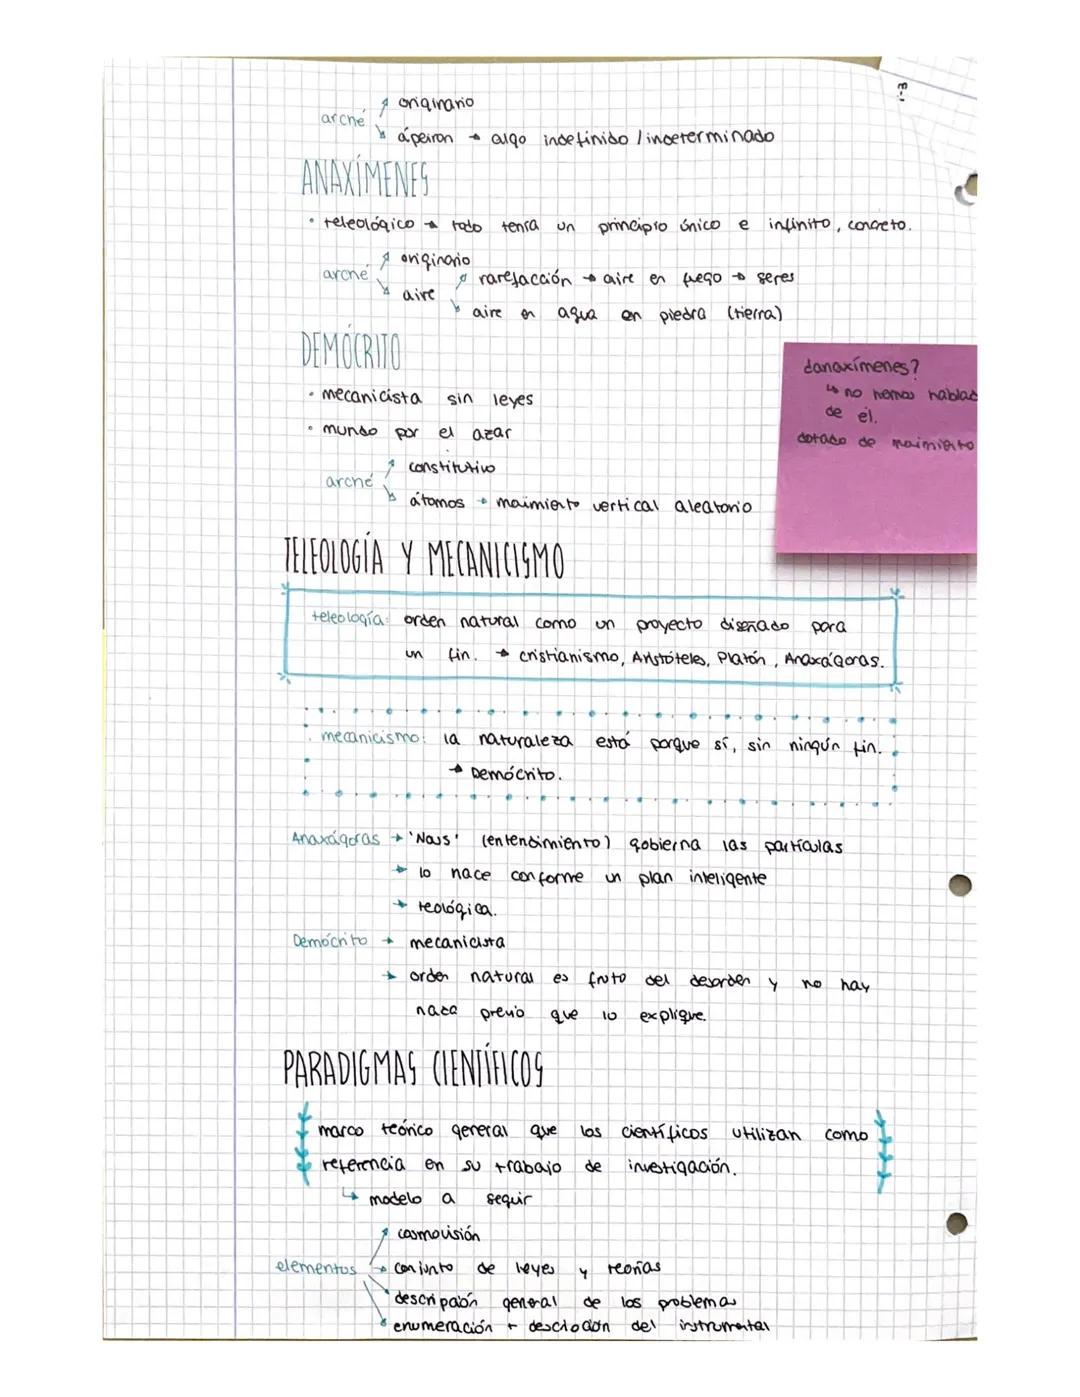 1-3
arché
originario
ápeiron → algo indefinido / indeterminado
ANAXÍMENES
• teleológico → todo tenía un principio único e infinito, concreto.
originario
arché
rarefacción → aire en fuego → seres
aire
aire en agua en piedra (tierra)
DEMÓCRITO
• mecanicista sin leyes
• mundo por el azar
constitutivo
arché
átomos → movimiento vertical aleatorio
danaxímenes?
↳ no hemos hablad
de él.
dotado de movimiento
TELEOLOGÍA Y MECANICISMO
teleología: orden natural como un proyecto diseñado para
un fin. → cristianismo, Aristóteles, Platón, Anaxágoras.
mecanicismo: la naturaleza está porque sí, sin ningún fin.
→ Demócrito.
Anaxágoras → 'Nous' (entendimiento) gobierna las partículas
→ lo nace conforme un plan inteligente
→ teológica.
Demócrito → mecanicista
→ orden natural es fruto del desorden y no hay
nada previo que lo explique.
PARADIGMAS CIENTÍFICOS
marco teórico general que los científicos utilizan como
referencia en su trabajo de investigación.
↳ modelo a seguir
cosmovisión
elementos → conjunto de leyes y teorías
descripción general de los problemas
enumeración + del instrumental